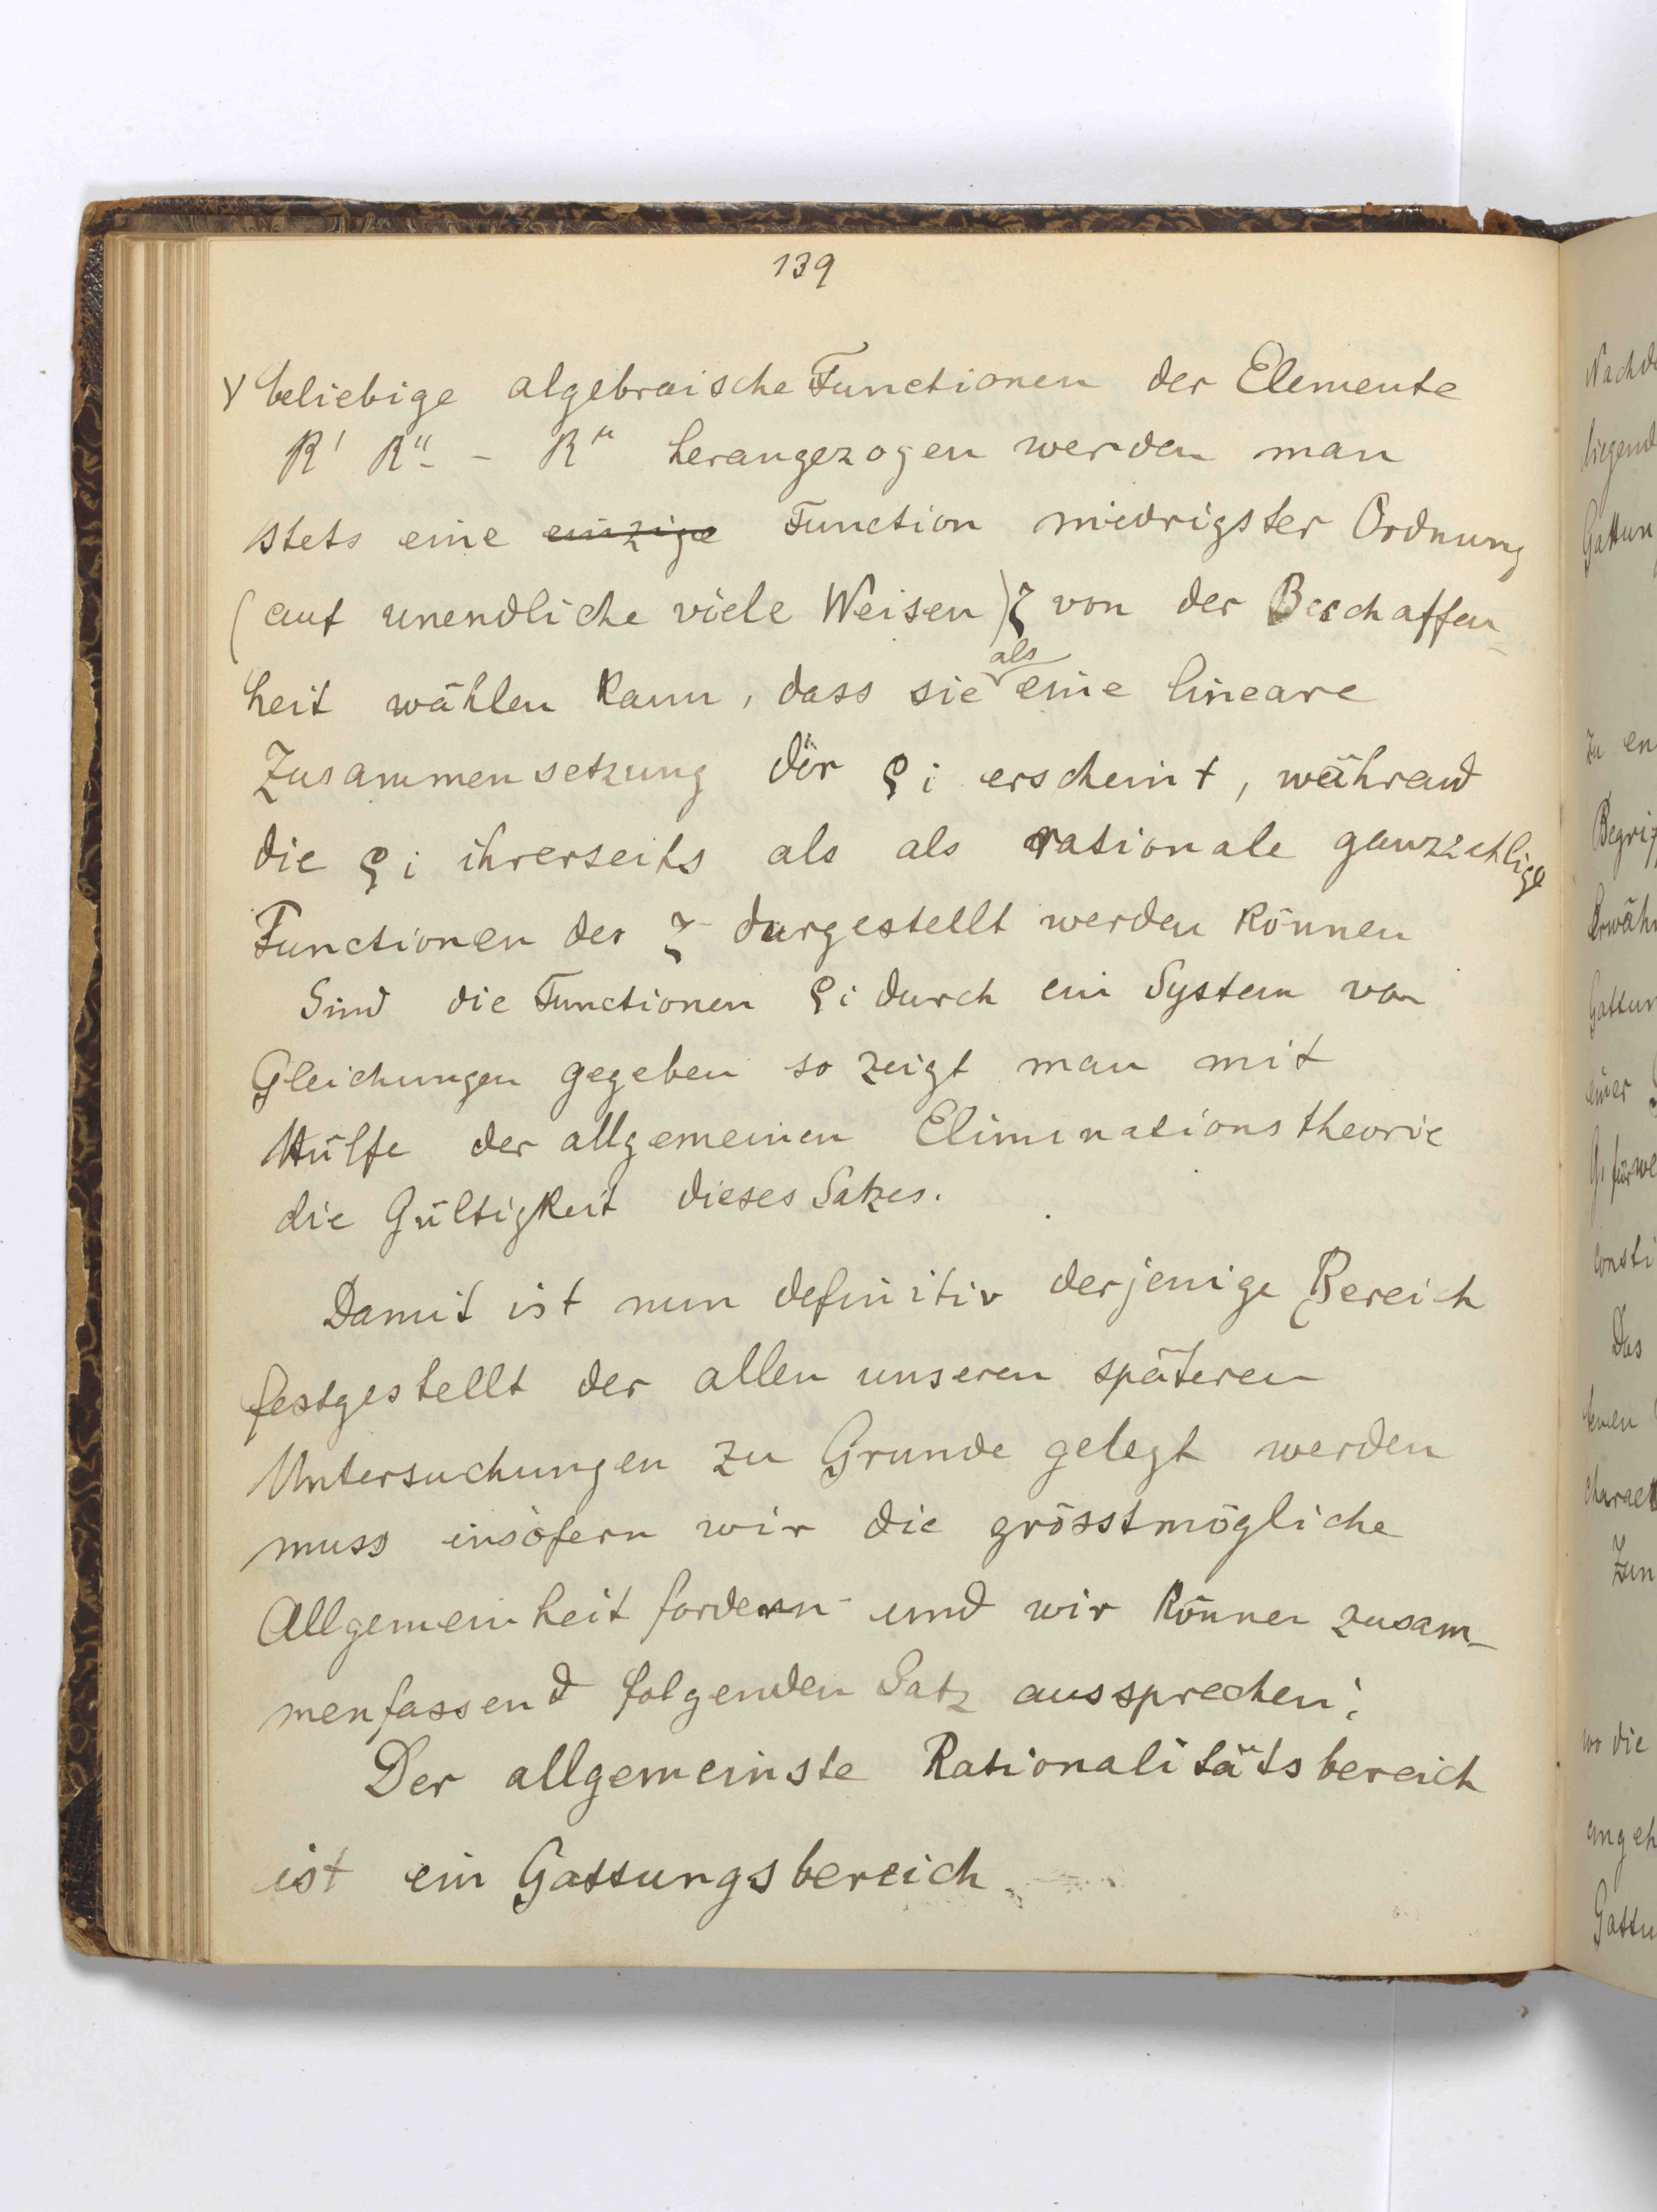 139
γ beliebige algebraische Functionen der Elemente
R' R'' - - R^μ herangezogen werden man
stets eine einzige Function niedrigster Ordnung
(auf unendliche viele Weisen) ζ von der Beschaffen-
heit wählen kann, dass sie als eine lineare
Zusammensetzung der ξi erscheint, während
die ξi ihrerseits als als rationale ganzzahlige
Functionen der ζ dargestellt werden können
Sind die Functionen ξi durch ein System von
Gleichungen gegeben so zeigt man mit
Hülfe der allgemeinen Eliminationstheorie
die Gültigkeit dieses Satzes.
Damit ist nun definitiv derjenige Bereich
festgestellt der allen unseren späteren
Untersuchungen zu Grunde gelegt werden
muss insofern wir die grösstmögliche
Allgemeinheit fordern und wir können zusam-
menfassend folgenden Satz aussprechen:
Der allgemeinste Rationalitätsbereich
ist ein Gattungsbereich.